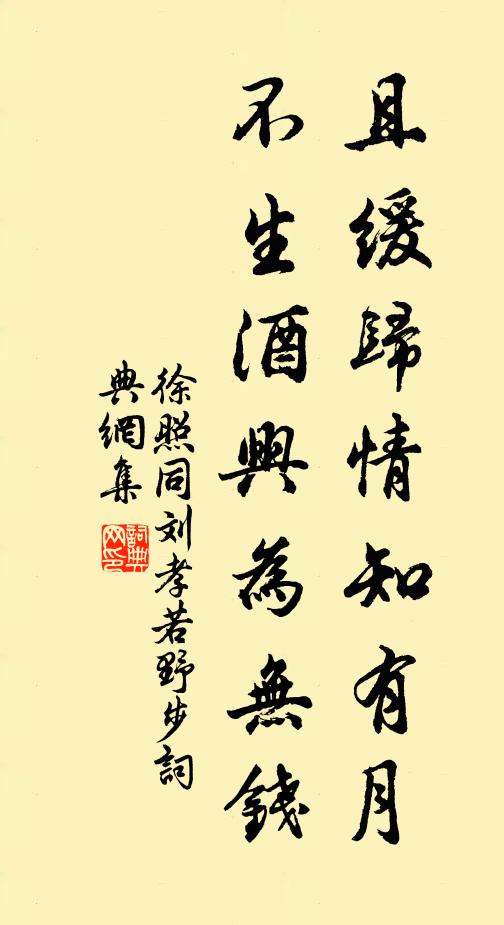 且緩歸情知有月
不生酒興為無錢
徐照同刘孝若野步詞
典網集
詞典
网印